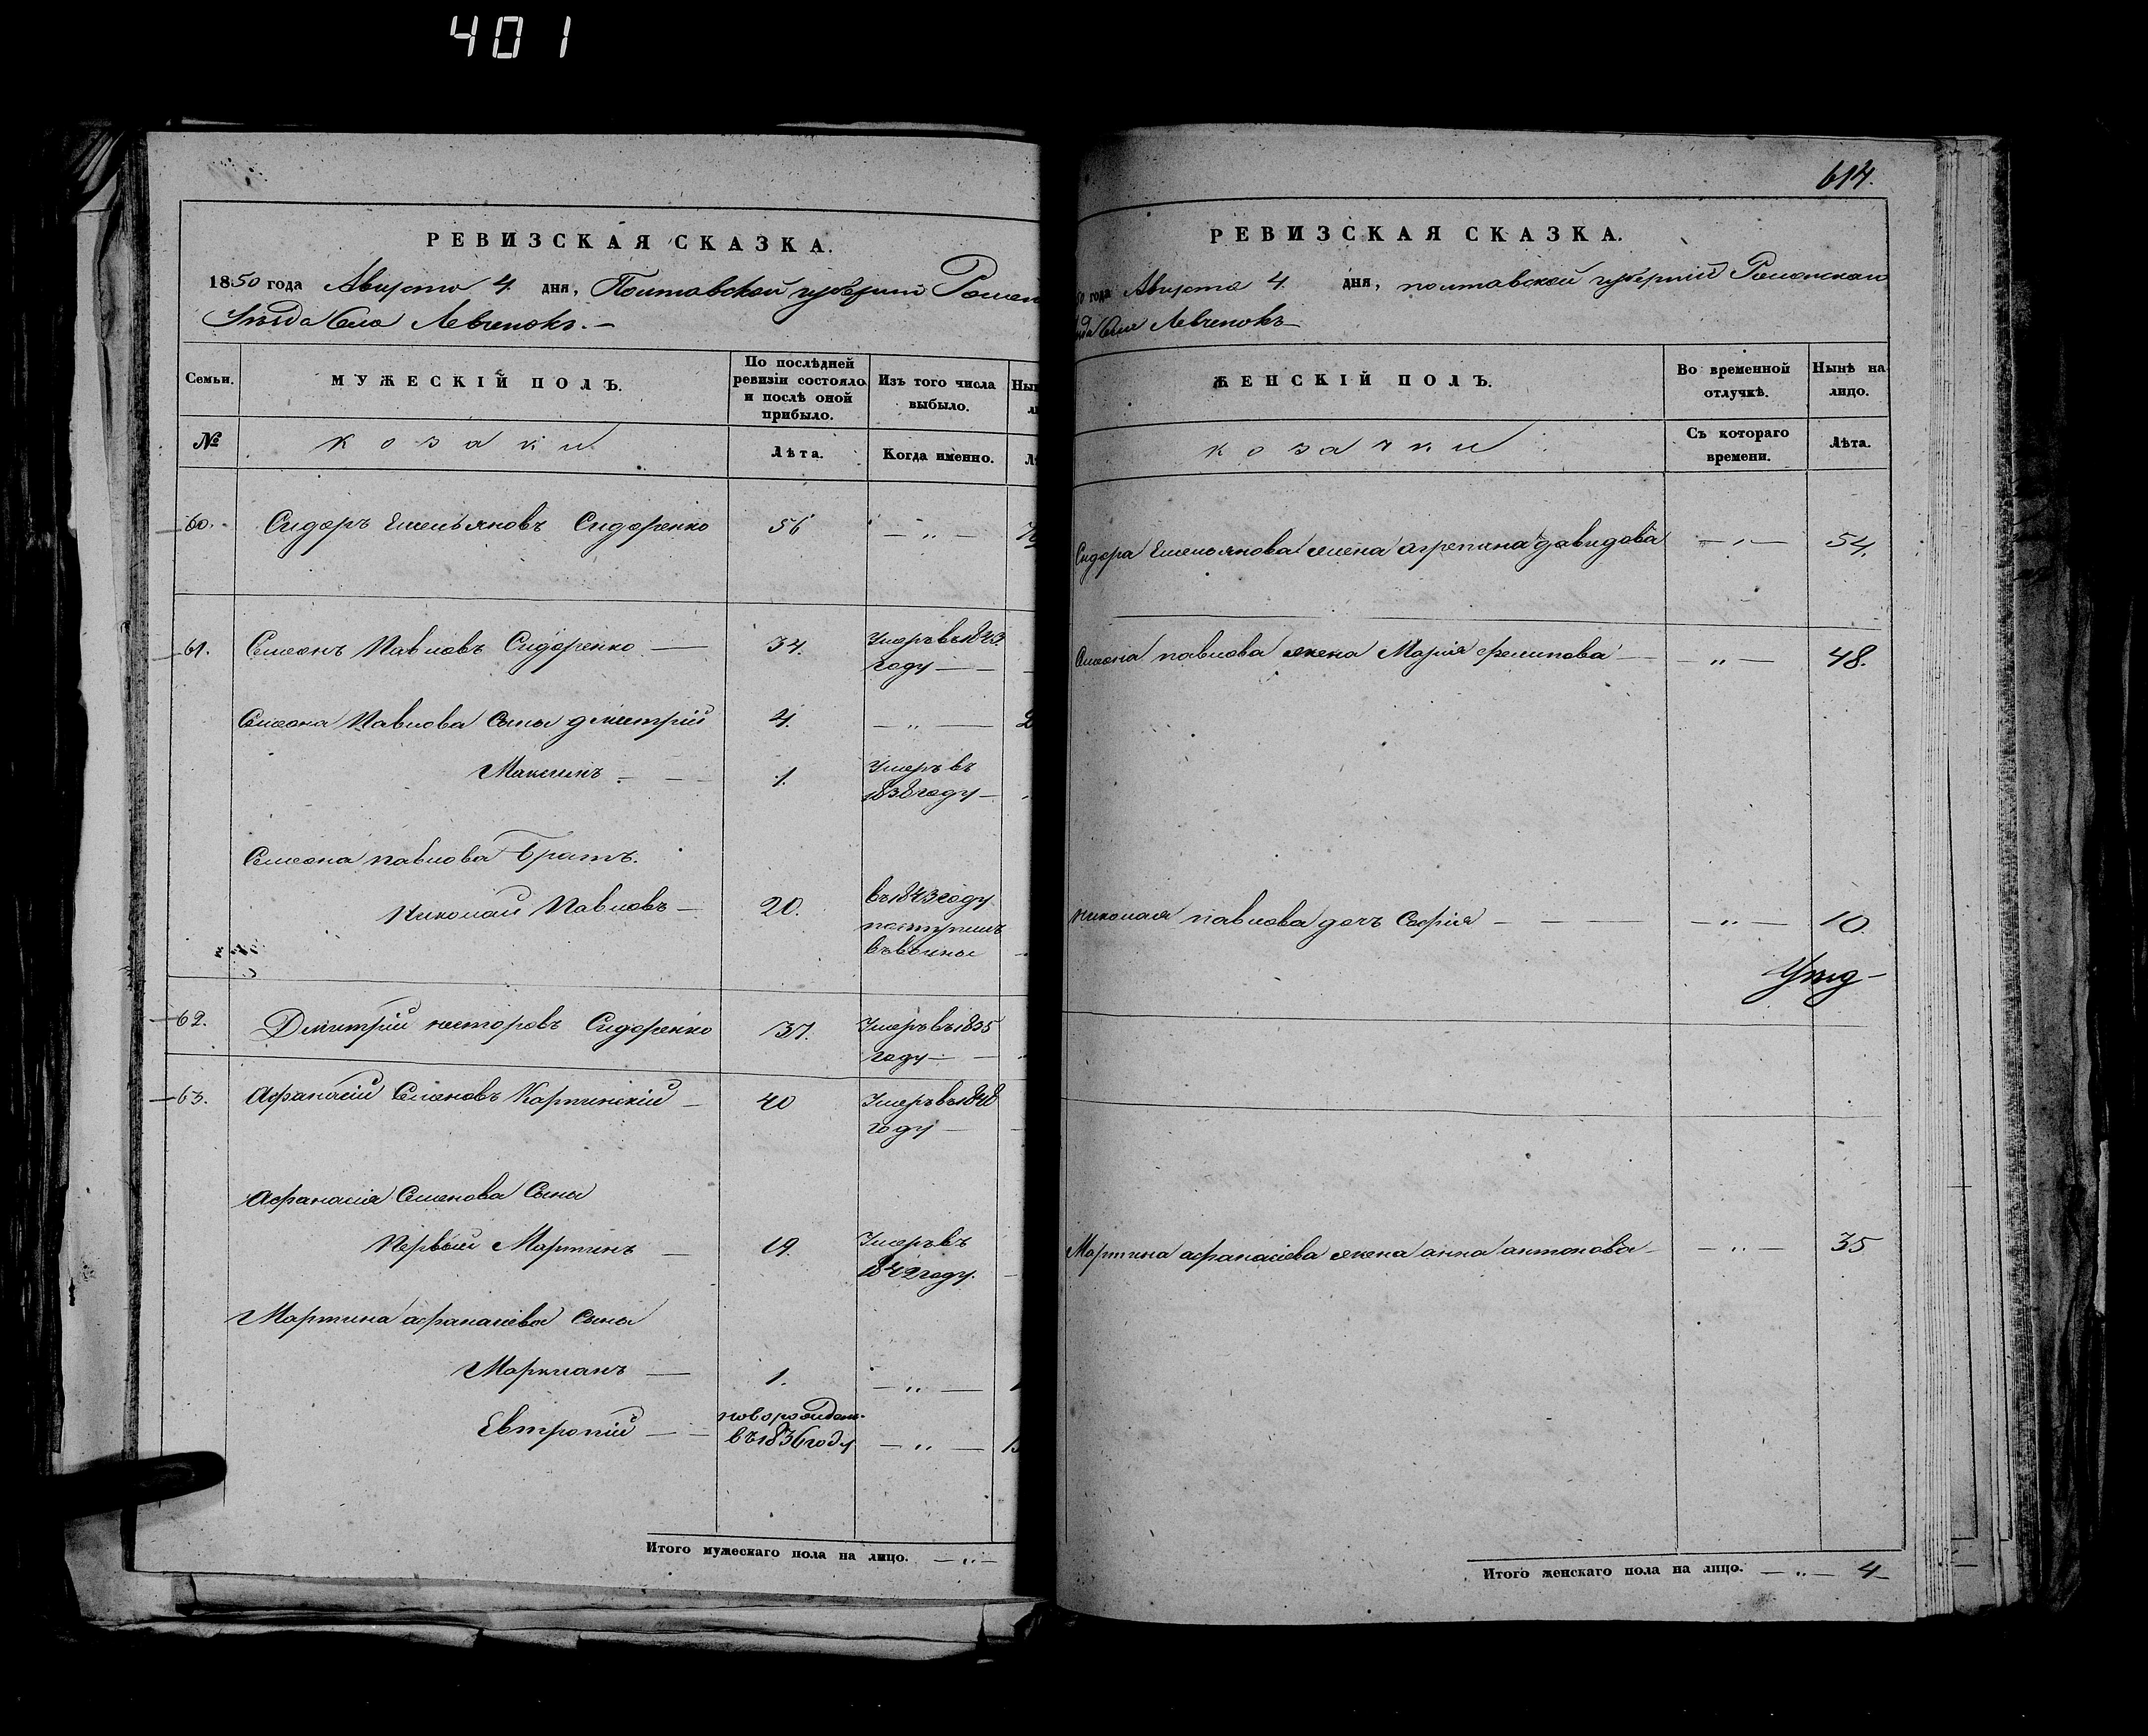 401
РЕВИЗСКАЯ СКАЗКА.
1850 года Августа 4 дня, Полтавской губерніи Ромен
Уѣзда Села Левченокъ. —
Семьи.
МУЖЕСКІЙ ПОЛЪ.
По послѣдней ревизіи состояло и послѣ оной прибыло.
Изъ того числа выбыло.
№
козаки
Лѣта.
Когда именно.
60. Сидоръ Емельяновъ Сидоренко 56 — „ —
61. Симеонъ Павловъ Сидоренко — 34. Умеръ въ 1843
году —
Симеона Павлова Сыны Дмитрій 4. — „ —
Максимъ — 1. Умеръ въ
1838 году —
Симеона Павлова Братъ.
Николай Павловъ — 20. въ 1843 году
поступилъ
въ воины
62. Дмитрій Несторовъ Сидоренко 37. Умеръ въ 1835
году —
63. Афанасій Семеновъ Карпинскій — 40 Умеръ въ 1848
году —
Афанасія Семенова Сыны
Первый Мартинъ — 19. Умеръ въ
1842 году.
Мартина Афанасіева Сыны
Маркіанъ — 1. — „ —
Евтропій — новорожден.
въ 1836 году — „ —
Итого мужескаго пола на лицо. — „ —
614.
РЕВИЗСКАЯ СКАЗКА.
50 года Августа 4 дня, полтавской губерніи Роменскаго
Села Левченокъ
ЖЕНСКІЙ ПОЛЪ.
Во временной отлучкѣ.
Нынѣ на лицо.
козачки
Съ котораго времени.
Лѣта.
Сидора Емельянова жена Агрепина Давидова — „ — 54.
Симеона павлова жена Марія филипова — — „ — 48.
Николая павлова дочъ Софія — — „ — 10.
Мартина афанасіева жена анна антонова — — „ — 35
Итого женскаго пола на лицо. — „ — 4